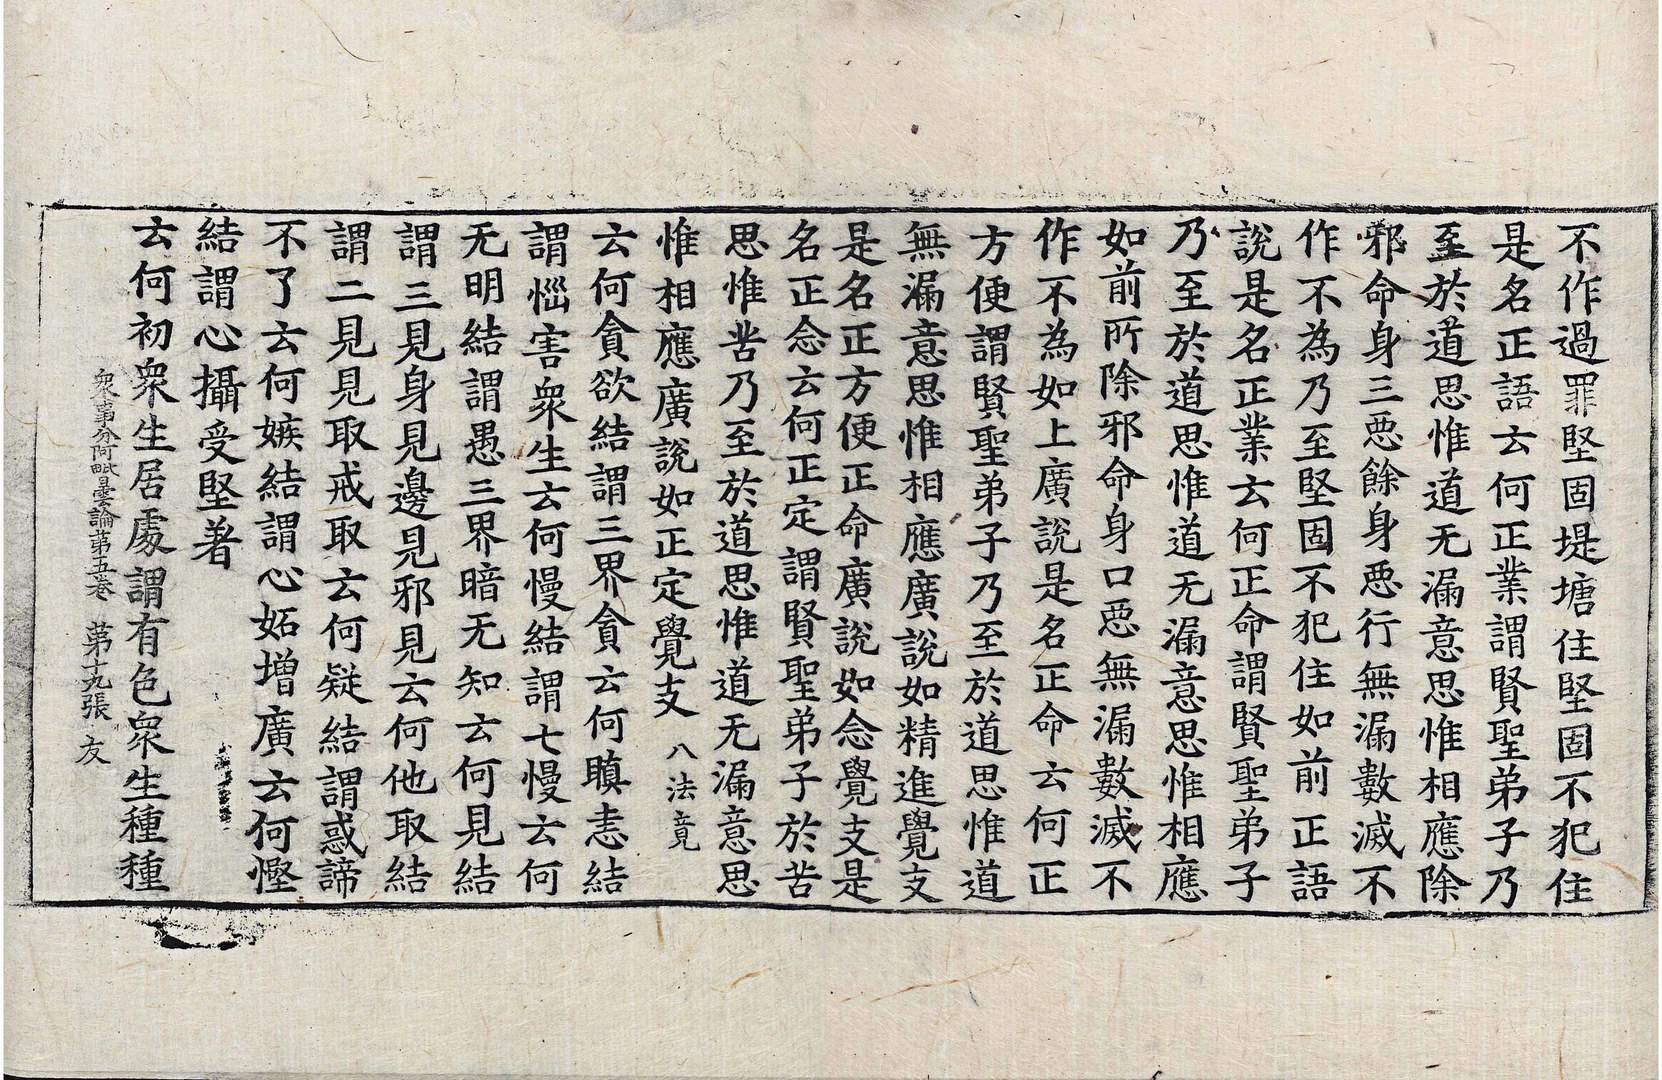 不作過罪堅固堤塘住堅固不犯住
是名正語云何正業謂賢聖弟子乃
至於道思惟道无漏意思惟相應除
邪命身三惡餘身惡行無漏數滅不
作不為乃至堅固不犯住如前正語
說是名正業云何正命謂賢聖弟子
乃至於道思惟道无漏意思惟相應
如前所除邪命身口惡無漏數滅不
作不為如上廣說是名正命云何正
方便謂賢聖弟子乃至於道思惟道
無漏意思惟相應廣說如精進覺支
是名正方便正命廣說如念覺支是
名正念云何正定謂賢聖弟子於苦
思惟苦乃至於道思惟道无漏意思
惟相應廣說如正定覺支 八法竟
云何貪欲結謂三界貪云何瞋恚結
謂惱害衆生云何慢結謂七慢云何
无明結謂愚三界暗无知云何見結
謂三見身見邊見邪見云何他取結
謂二見見取戒取云何疑結謂惑諦
不了云何嫉結謂心妬增廣云何慳
結謂心攝受堅著
云何初衆生居處謂有色衆生種種
衆事分阿毗曇論第五卷 第十九張 友